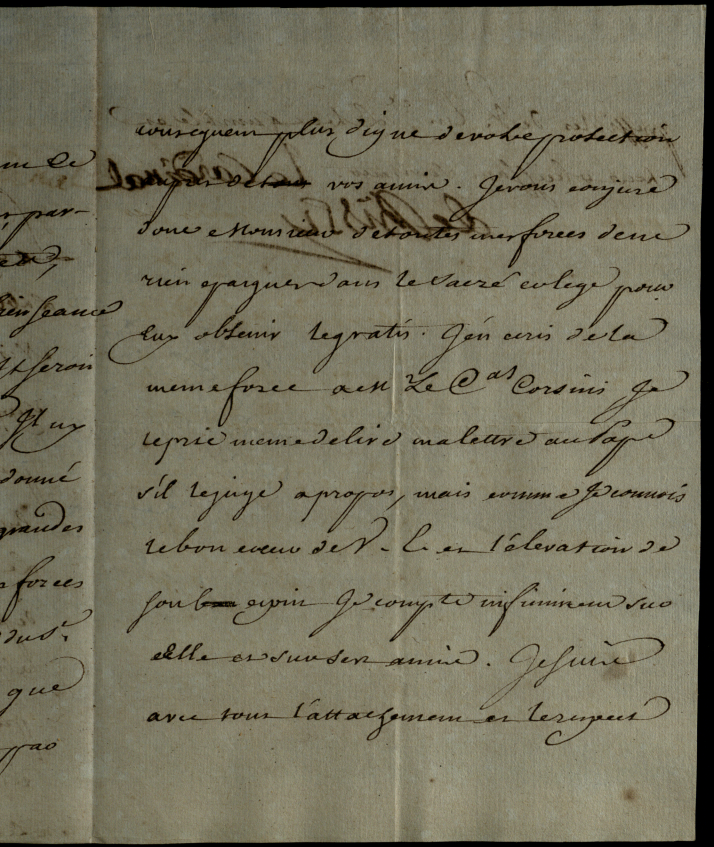 consequent plus digne de votre protection
et vos amis. Je vous conjure
donc Monsieur de toutes mes forces de ne
rien epargner dans le sacré colege pour
luy obtenir le gratis. J'en ecris de la
meme force a M Le C^al Corsini Je
le prie meme de lire ma lettre au Pape
s'il le juge a propos, mais comme Je connois
le bon coeur de V. E. et l'élevation de
son esprit Je compte infiniment sur
elle et sur ses amis. Je suis
avec tout l'attachement et le respect
m de
par-
enseance
seroit
Il y
donné
grandes
forces
du S^r
que
pas
Le Cardinal
De Bissy